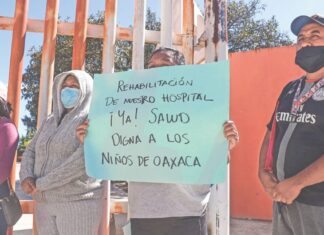 REHABILITACIÓN
DE NUESTRO HOSPITAL
¡YA! SALUD
DIGNA A LOS
NIÑOS DE OAXACA
Emirates